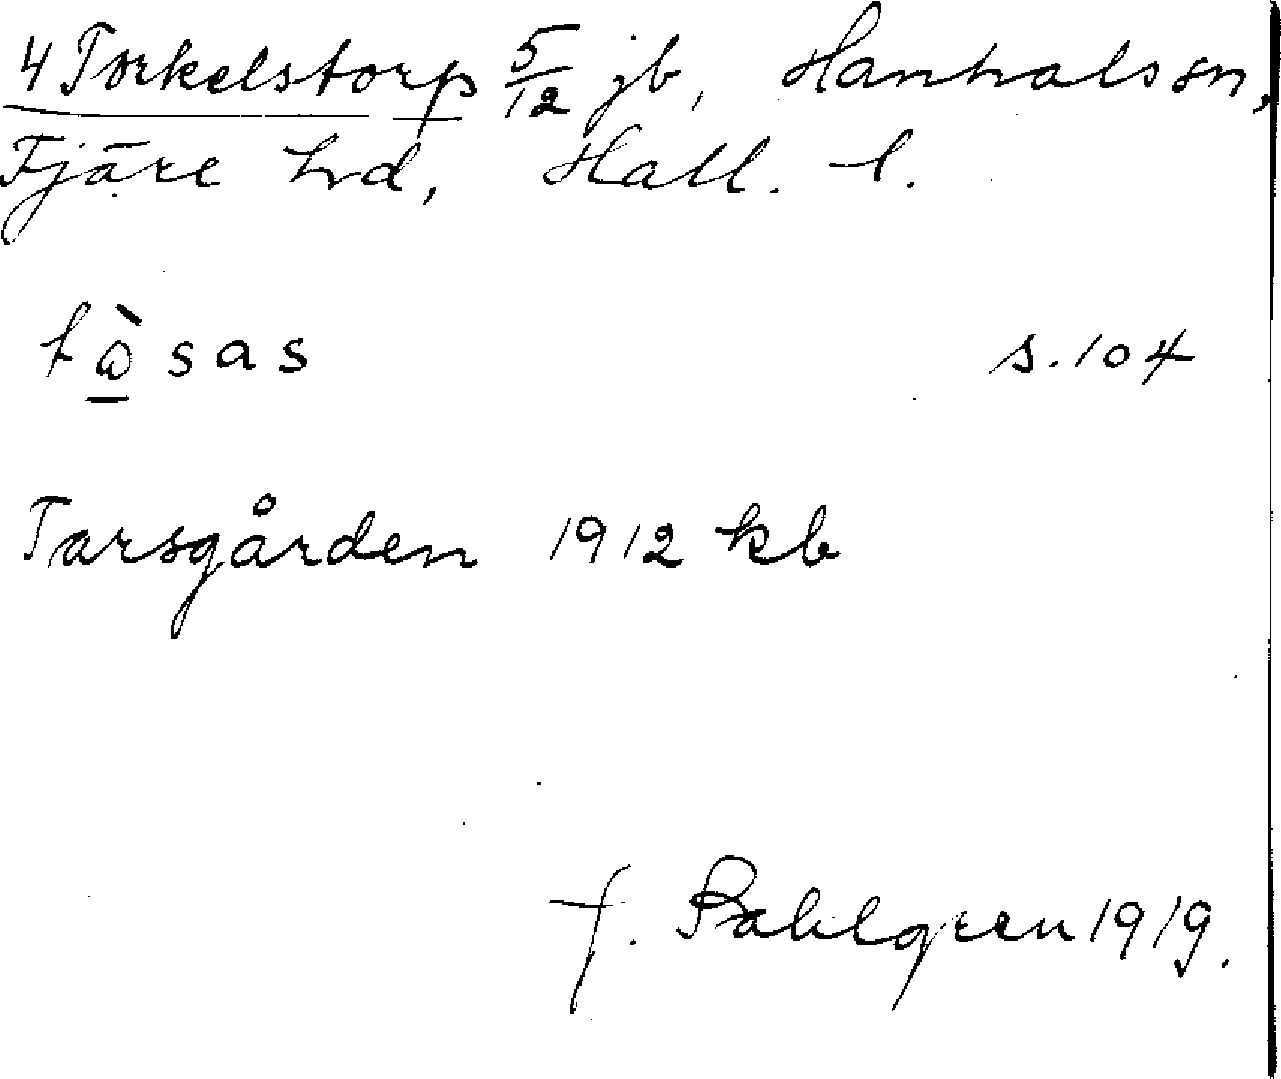 4 Torkelstorp 5/12 jb, Hanhals sn,
Fjäre hd, Hall. l.
s. 104
Tarsgården 1912 kb
f. Bahlgren 1919.